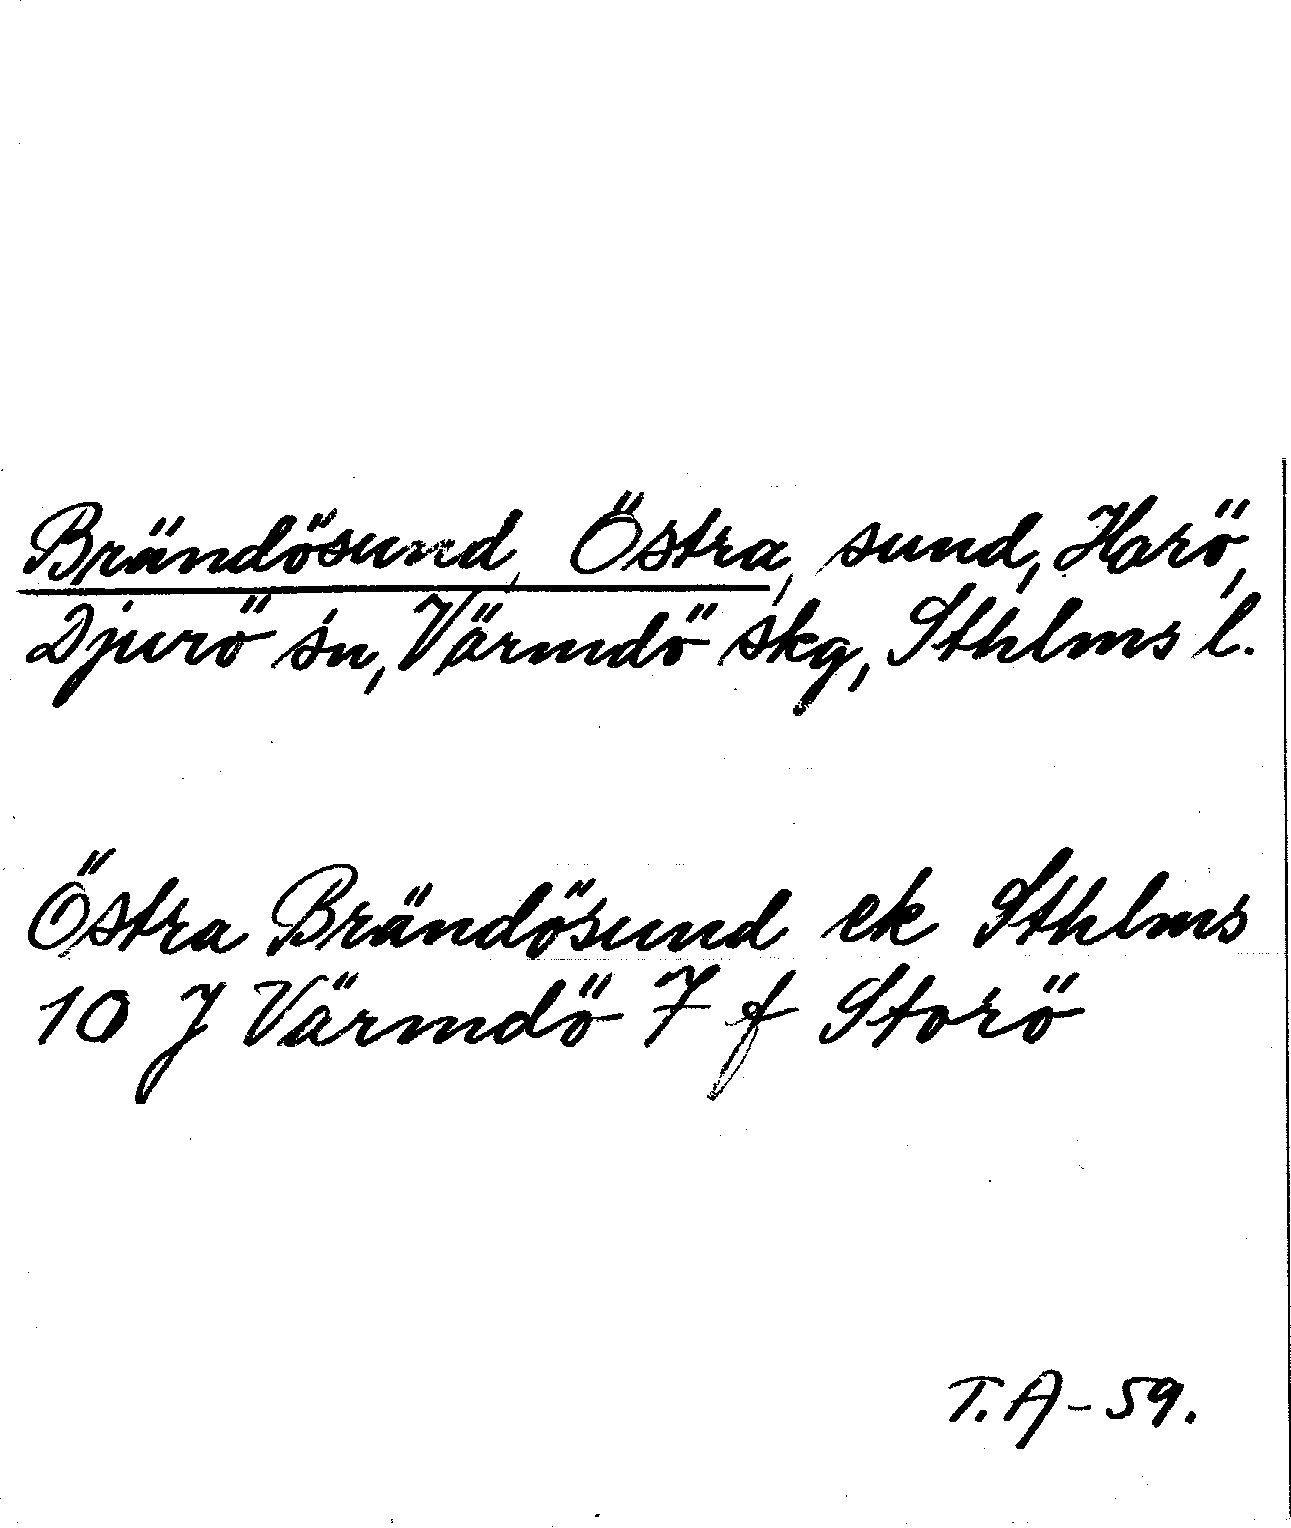 Brändösund, Östra, sund, Harö,
Djurö sn, Värmdö skg, Sthlms l.
Östra Brändösund ek Sthlms
10 J Värmdö 7 f Storö
T.A-59.